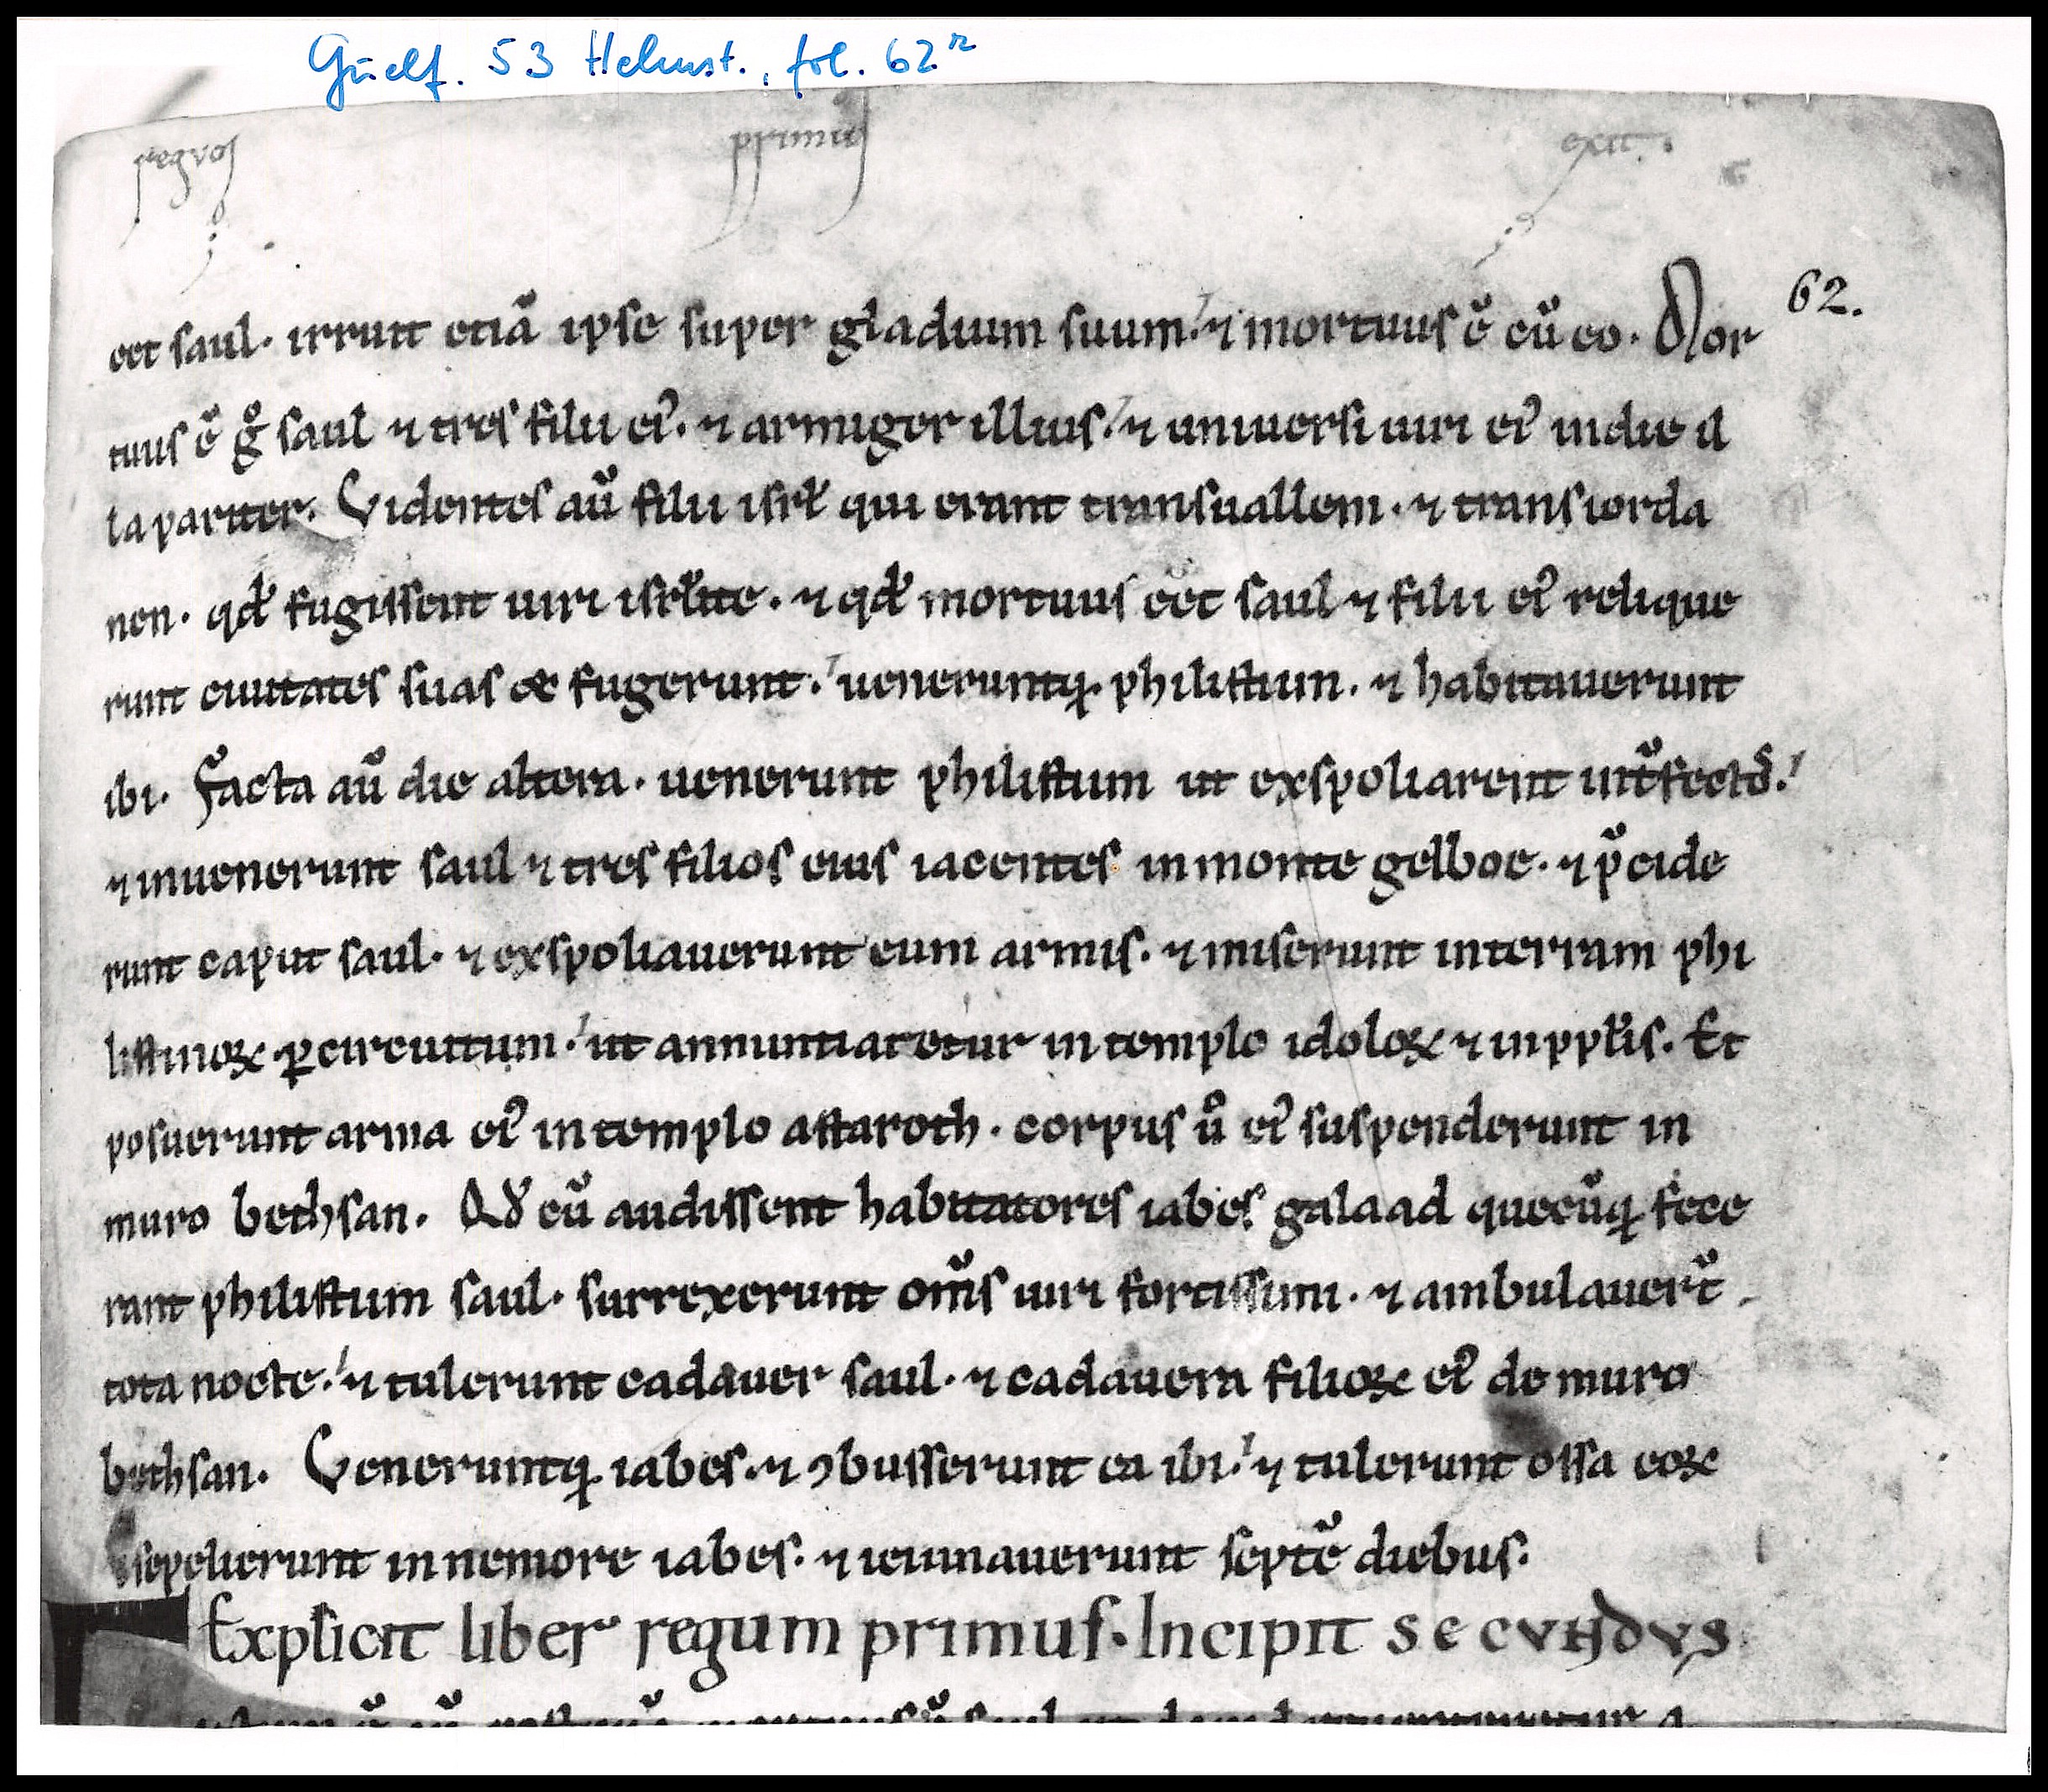 Guelf. 53 Helmst., fol. 62r
primus exit.
62.
eēt saul. irruit etiā ipse super gladium suum. ⁊ mortuus ē cū eo. Mor
tuus ē gͦ saul ⁊ tres filii eiꝰ. ⁊ armiger illius. ⁊ uniuersi uiri eiꝰ in die il
la pariter. Videntes aū filii isrł qui erant trans uallem. ⁊ trans iorda
nen. qd̄ fugissent uiri isrłite. ⁊ qd̄ mortuus eēt saul ⁊ filii eiꝰ relique
runt ciuitates suas & fugerunt. ueneruntq; philistiim. ⁊ habitauerunt
ibi. Facta aū die altera. uenerunt philistiim ut exspoliarent int̄fectōs.
⁊ inuenerunt saul ⁊ tres filios eius iacentes in monte gelboe. ⁊ p̄cide
runt caput saul. ⁊ exspoliauerunt eum armis. ⁊ miserunt in terram phi
listinoꝝ ꝑ circuitum. ut annuntiaretur in templo idoloꝝ ⁊ in ppłis. Et
posuerunt arma eiꝰ in templo astaroth. corpus ū eiꝰ suspenderunt in
muro bethsan. Qd̄ cū audissent habitatores iabes galaad quecūq; fece
rant philistiim saul. surrexerunt om̄s uiri fortissimi. ⁊ ambulauer̄t
tota nocte. ⁊ tulerunt cadauer saul. ⁊ cadauera filioꝝ eiꝰ de muro
bethsan. Veneruntq; iabes. ⁊ ꝯbusserunt ea ibi. ⁊ tulerunt ossa eoꝝ
⁊ sepelierunt in nemore iabes. ⁊ ieiunauerunt septē diebus.
Explicit liber regum primus. Incipit secundus